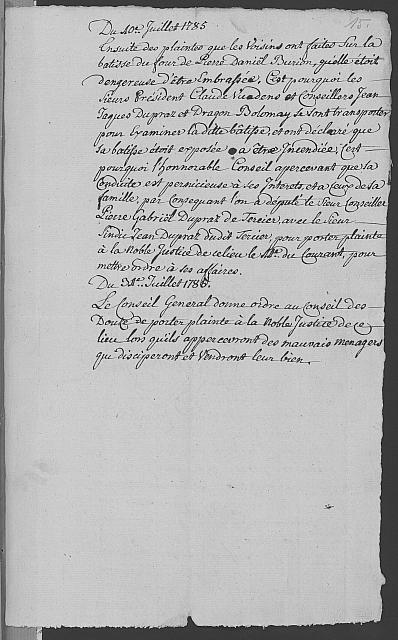 Du 10e. Juillet 1785
Ensuite des plaintes que les Voisins ont faites Sur la
batisse du four de Pierre Daniel Burion, qu'elle étoit
dengereuse d'être Embrasée, C'est pourquoi les
Sieurs Président Claude Vuadens et Conseillers Jean
Jaques Dupraz et Dragon Bolomay, se sont transporter
pour Examiner la ditte batisse, et ont déclaré que
sa batisse étoit exposée a être Incendiée, C'est
pourquoi l'honnorable Conseil apercevant que sa
Conduite est pernicieuse à ses Interets, et a Ceux de sa
famille, par Consequent l'on a député le Sieur Conseiller
Pierre Gabriel Dupraz de Tercier, avec le Sieur
Sindic Jean Dupraz dudit Tercier, pour porter plainte
à la Noble Justice de ce lieu le du Courant, pour
mettre ordre à ses affaires.
Du Juillet 1785.
Le Conseil General donne ordre au Conseil des
Douze de porter plainte à la Noble Justice de ce
lieu lors qu'ils appercevront des mauvais menagers
qui disciperont et Vendront leur bien.